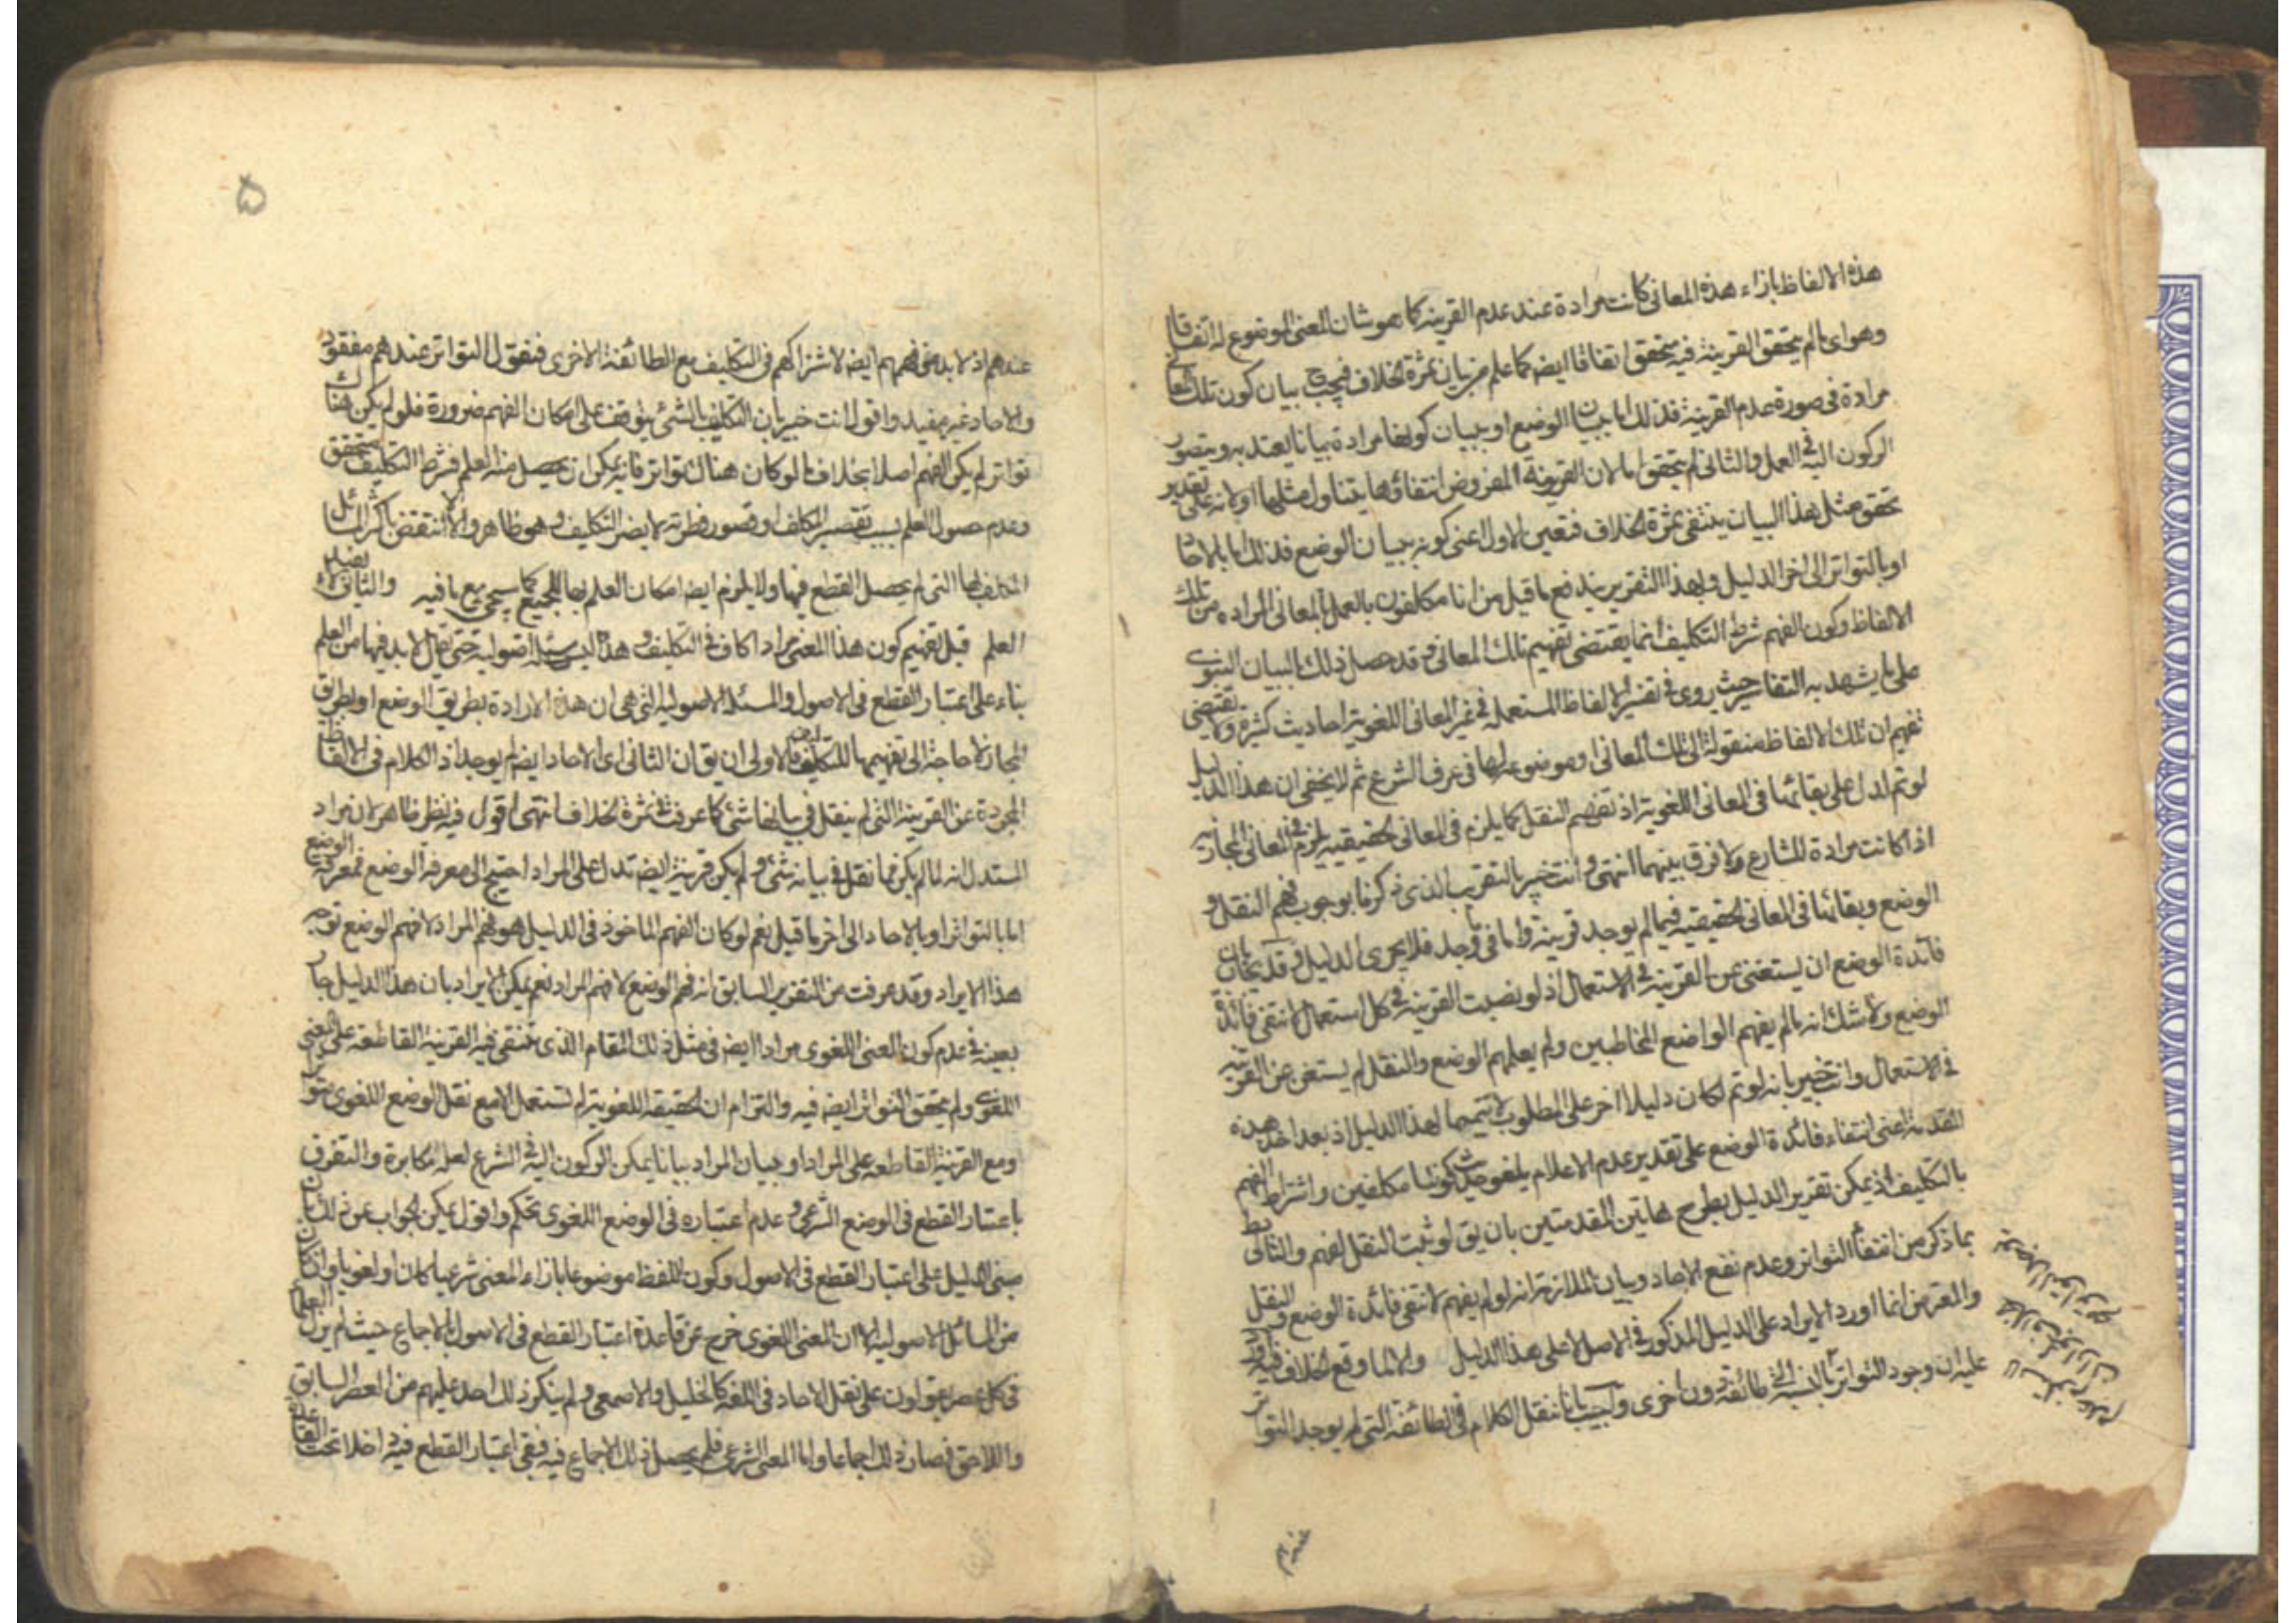 هذه الالفاظ بازاء هذه المعانى كانت مرادة عند عدم القرينه كما هو شان المعنى الموضوع له اتفاقا
وهو اى ما لم يتحقق القرينة فيه يتحقق اتفاقا ايضا كما علم من بيان ثمرة الخلاف فيجب ح بيان كون تلك المعانى
مرادة فى صورة عدم القرينة فذلك اما ببيان الوضع او ببيان كونها مرادة بيانا يعتد به ويتصور
الركون اليه فى العمل والثانى لم يتحقق اما لان القرينة المفروض انتفاؤها يتناول مثلها او لانه على تقدير
تحقق مثل هذا البيان ينتفى ثمرة الخلاف فتعين الاول اعنى كونه ببيان الوضع فذلك اما بالاحاد
او بالتواتر الى اخر الدليل وبهذا التقرير يندفع ما قيل من انا مكلفون بالعمل بالمعانى المراده من تلك
الالفاظ وكون الفهم شرط التكليف انما يقتضى تفهيم تلك المعانى وقد حصل ذلك بالبيان النبوى
على ما يشهد به التفاسير حيث روى فى تفسير الالفاظ المستعمله فى غير المعانى اللغوية احاديث كثيرة ولا يقتضى
تفهيم ان تلك الالفاظ منقولة الى تلك المعانى او موضوعة لها فى عرف الشرع ثم لا يخفى ان هذا الدليل
لو تم لدل على بقائها فى المعانى اللغوية اذ تفهيم النقل كما يلزم فى المعانى الحقيقيه يلزم فى المعانى المجازيه
اذا كانت مرادة للشارع ولا فرق بينهما انتهى وانت خبير بالتقريب الذى ذكرنا بوجوب فهم النقل و
الوضع وبقائها فى المعانى الحقيقيه فيما لم يوجد قرينة واما فى ما وجد فلا يجرى الدليل وقد يجاب بان
فائدة الوضع ان يستغنى عن القرينة فى الاستعمال اذ لو نصبت القرينة فى كل استعمال لانتفى فائدة
الوضع ولا شك انه ما لم يفهم الواضع المخاطبين ولم يعلمهم الوضع والنقل لم يستغن عن القرينه
فى الاستعمال وانت خبير بانه لو تم لكان دليلا اخر على المطلوب لا تتميما لهذا الدليل اذ بعد اخذ هذه
المقدمة اعنى انتفاء فائدة الوضع على تقدير عدم الاعلام يلغو حديث كوننا مكلفين واشتراط الفهم
بالتكليف اذ يمكن تقرير الدليل بطرح هاتين المقدمتين بان يق لو ثبت النقل لفهم والتالى بط
بما ذكر من انتفاء التواتر وعدم نفع الاحاد وبيان الملازمة انه لو لم يفهم لانتفى فائدة الوضع والنقل
والمعترض انما اورد الايراد على الدليل المذكور فى الاصل لا على هذا الدليل ولا لما وقع الخلاف فيه
عليه ان وجود التواتر بالنسبة الى طائفة دون اخرى واجيب بانا ننقل الكلام فى الطائفة التى لم يوجد التواتر
۵
عندهم اذ لا بد من فهمهم ايضا لاشتراكهم فى التكليف مع الطائفة الاخرى فنقول التواتر عندهم مفقود
والاحاد غير مفيد واقول انت خبير بان التكليف بالشئ يتوقف على امكان الفهم ضرورة فلو لم يكن هناك
تواتر لم يكن الفهم اصلا بخلاف ما لو كان هناك تواتر فانه يمكن ان يحصل منه العلم فشرط التكليف متحقق
وعدم حصول العلم بسبب تقصير المكلف او قصور فطرته لا يضر التكليف وهو ظاهر والا لانتقض باكثر المسائل
المكلف بها التى لم يحصل القطع فيها ولا يلزم ايضا امكان العلم بها للجميع كما سيجئ مع ما فيه والثانى لا يفيد
العلم قيل تفهيم كون هذا المعنى مرادا كاف فى التكليف وهذا ليس مسئلة اصولية حتى يقال لا بد فيها من العلم
بناء على اعتبار القطع فى الاصول والمسئلة الاصوليه التى هى ان هذه الارادة بطريق الوضع او بطريق
المجاز لا حاجة الى تفهيمها للتكليف فالاولى ان يق ان الثانى اى الاحاد ايضا لم يوجد اذ الكلام فى الالفاظ
المجردة عن القرينة التى لم ينقل فى بيانها شئ كما عرفت فى ثمرة الخلاف انتهى اقول فيه نظر ظاهر لان مراد
المستدل انه لما لم يكن مما نقل فى بيانه شئ ولم يكن قرينة ايضا تدل على المراد احتيج الى معرفة الوضع فمعرفة الوضع
اما بالتواتر او بالاحاد الى اخر ما قيل نعم لو كان الفهم الماخوذ فى الدليل هو فهم المراد لا فهم الوضع توجه
هذا الايراد وقد عرفت من التقرير السابق انه فهم الوضع لا فهم المراد نعم يمكن الايراد بان هذا الدليل جار
بعينه فى عدم كون المعنى اللغوى مرادا ايضا فى مثل ذلك المقام الذى ينتفى فيه القرينة القاطعة على المعنى
اللغوى ولم يتحقق التواتر ايضا فيه والتزام ان الحقيقة اللغوية لم تستعمل الا مع نقل الوضع اللغوى بتواتر
ومع القرينة القاطعه على المراد او ببيان المراد بيانا يمكن الركون اليه فى الشرع لعله مكابرة والتفرق
باعتبار القطع فى الوضع الشرعى وعدم اعتباره فى الوضع اللغوى تحكم واقول يمكن الجواب عن ذلك بان
مبنى الدليل على اعتبار القطع فى الاصول وكون اللفظ موضوعا بازاء المعنى شرعيا كان او لغويا وان كان
من المسائل الاصوليه الا ان المعنى اللغوى خرج عن قاعدة اعتبار القطع فى الاصول بالاجماع حيث لم يزل العلماء
فى كل عصر يعولون على نقل الاحاد فى اللغه كالخليل والاصمعى ولم ينكر ذلك احد عليهم من العصر السابق
واللاحق فصار ذلك اجماعا واما المعنى الشرعى فلم يحصل ذلك الاجماع فيه فبقى اعتبار القطع فيه داخلا تحت القاعدة